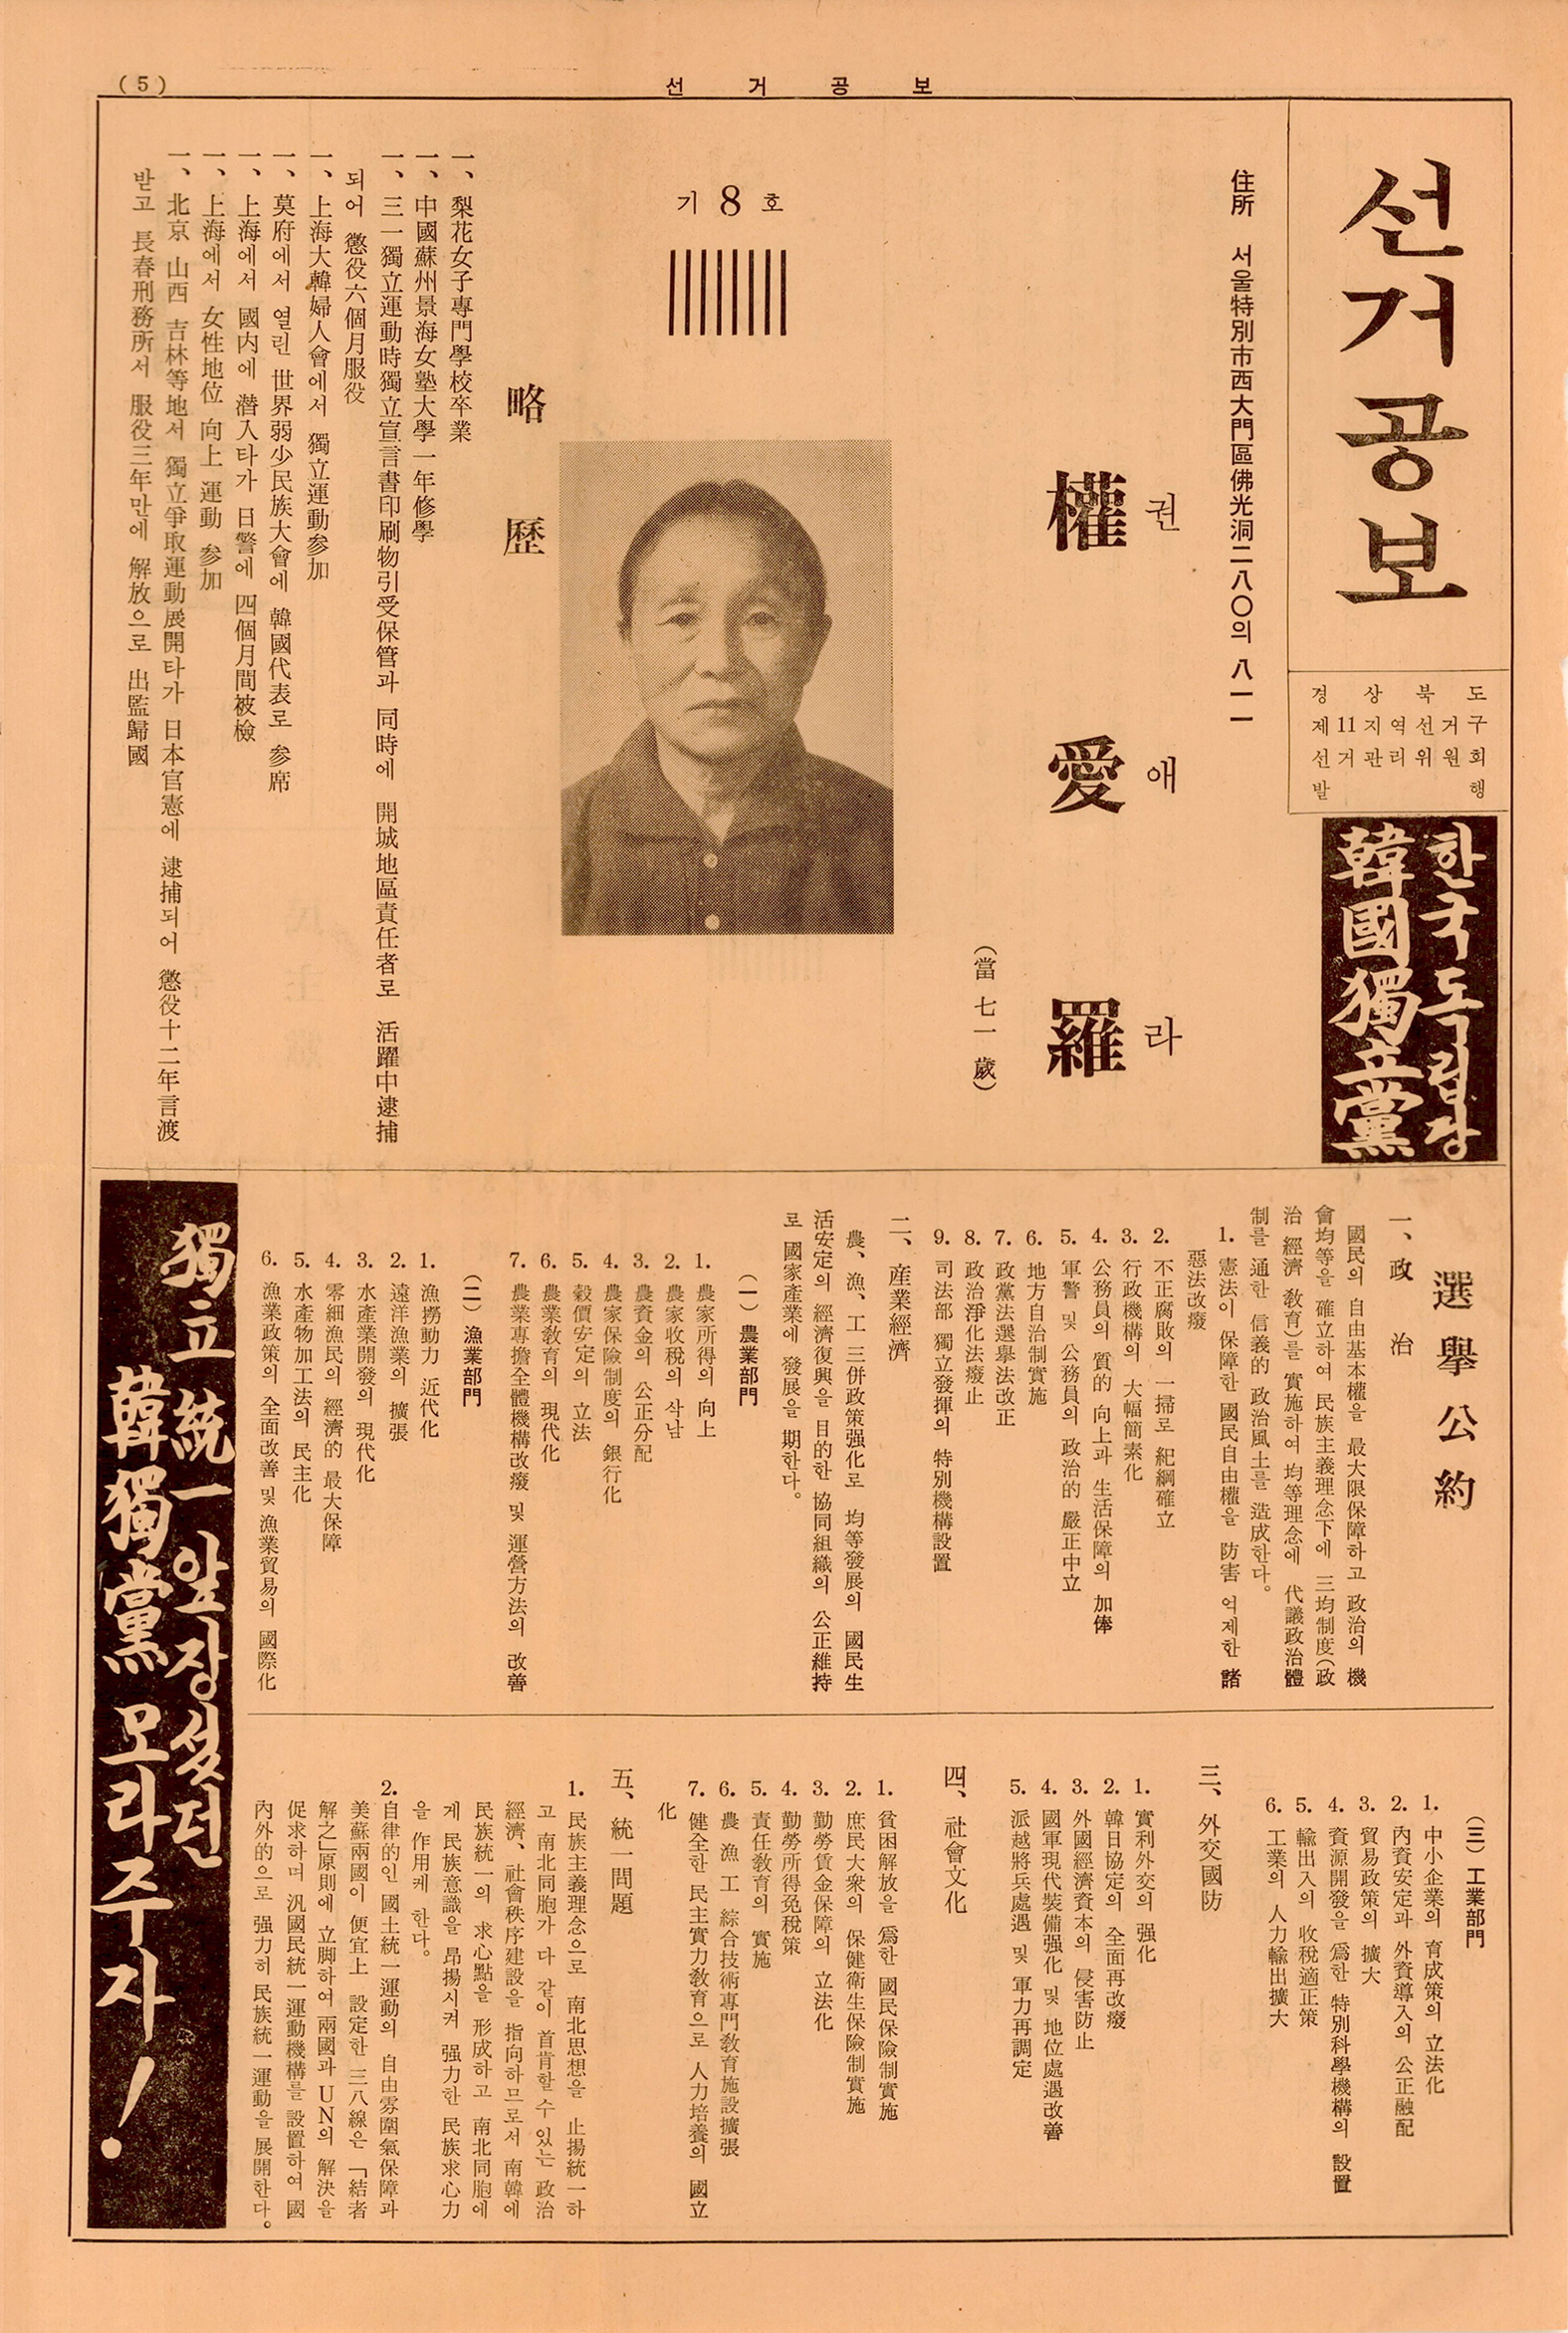 (5)
선거공보
선거공보
경상북도
제11지역선거구
선거관리위원회
발행
한국독립당
韓國獨立黨
住所 서울特別市西大門區佛光洞二八〇의 八一一
권애라
權愛羅
(當 七一歲)
기 8 호
略歷
一、梨花女子專門學校卒業
一、中國蘇州景海女塾大學一年修學
一、三一獨立運動時獨立宣言書印刷物引受保管과 同時에 開城地區責任者로 活躍中逮捕
되어 懲役六個月服役
一、上海大韓婦人會에서 獨立運動参加
一、莫府에서 열린 世界弱少民族大會에 韓國代表로 参席
一、上海에서 國内에 潛入타가 日警에 四個月間被檢
一、上海에서 女性地位 向上 運動 参加
一、北京 山西 吉林等地서 獨立爭取運動展開타가 日本官憲에 逮捕되어 懲役十二年言渡
받고 長春刑務所서 服役三年만에 解放으로 出監歸國
選擧公約
一、政治
國民의 自由基本權을 最大限保障하고 政治의 機
會均等을 確立하여 民族主義理念下에 三均制度(政
治 經濟 敎育)를 實施하여 均等理念에 代議政治體
制를 通한 信義的 政治風土를 造成한다。
1. 憲法이 保障한 國民自由權을 防害 억제한 諸
惡法改癈
2. 不正腐敗의 一掃로 紀綱確立
3. 行政機構의 大幅簡素化
4. 公務員의 質的 向上과 生活保障의 加俸
5. 軍警 및 公務員의 政治的 嚴正中立
6. 地方自治制實施
7. 政黨法選擧法改正
8. 政治淨化法癈止
9. 司法部 獨立發揮의 特別機構設置
二、産業經濟
農、漁、工 三併政策强化로 均等發展의 國民生
活安定의 經濟復興을 目的한 協同組織의 公正維持
로 國家產業에 發展을 期한다。
(一) 農業部門
1. 農家所得의 向上
2. 農家收稅의 삭남
3. 農資金의 公正分配
4. 農家保險制度의 銀行化
5. 穀價安定의 立法
6. 農業敎育의 現代化
7. 農業專擔全體機構改癈 및 運營方法의 改善
(二) 漁業部門
1. 漁撈動力 近代化
2. 遠洋漁業의 擴張
3. 水產業開發의 現代化
4. 零細漁民의 經濟的 最大保障
5. 水產物加工法의 民主化
6. 漁業政策의 全面改善 및 漁業貿易의 國際化
(三) 工業部門
1. 中小企業의 育成策의 立法化
2. 內資安定과 外資導入의 公正融配
3. 貿易政策의 擴大
4. 資源開發을 爲한 特別科學機構의 設置
5. 輸出入의 收稅適正策
6. 工業의 人力輸出擴大
三、外交國防
1. 實利外交의 强化
2. 韓日協定의 全面再改癈
3. 外國經濟資本의 侵害防止
4. 國軍現代裝備强化 및 地位處遇改善
5. 派越將兵處遇 및 軍力再調定
四、社會文化
1. 貧困解放을 爲한 國民保險制實施
2. 庶民大衆의 保健衛生保險制實施
3. 勤勞賃金保障의 立法化
4. 勤勞所得免稅策
5. 責任敎育의 實施
6. 農 漁 工 綜合技術專門敎育施設擴張
7. 健全한 民主實力敎育으로 人力培養의 國立
化
五、統一問題
1. 民族主義理念으로 南北思想을 止揚統一하
고 南北同胞가 다 같이 首肯할 수 있는 政治
經濟、社會秩序建設을 指向하므로서 南韓에
民族統一의 求心點을 形成하고 南北同胞에
게 民族意識을 昂揚시켜 强力한 民族求心力
을 作用케 한다。
2. 自律的인 國土統一運動의 自由雰圍氣保障과
美蘇兩國이 便宜上 設定한 三八線은 「結者
解之」原則에 立脚하여 兩國과 UN의 解決을
促求하며 汎國民統一運動機構를 設置하여 國
內外的으로 强力히 民族統一運動을 展開한다。
獨立統一앞장섰던
韓獨黨 모라주자!